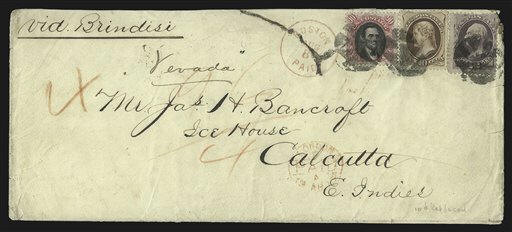 via. Brindisi
"Nevada"
Mr Jas H. Bancroft
Ice House
Calcutta
E. Indies
BOSTON
PAID